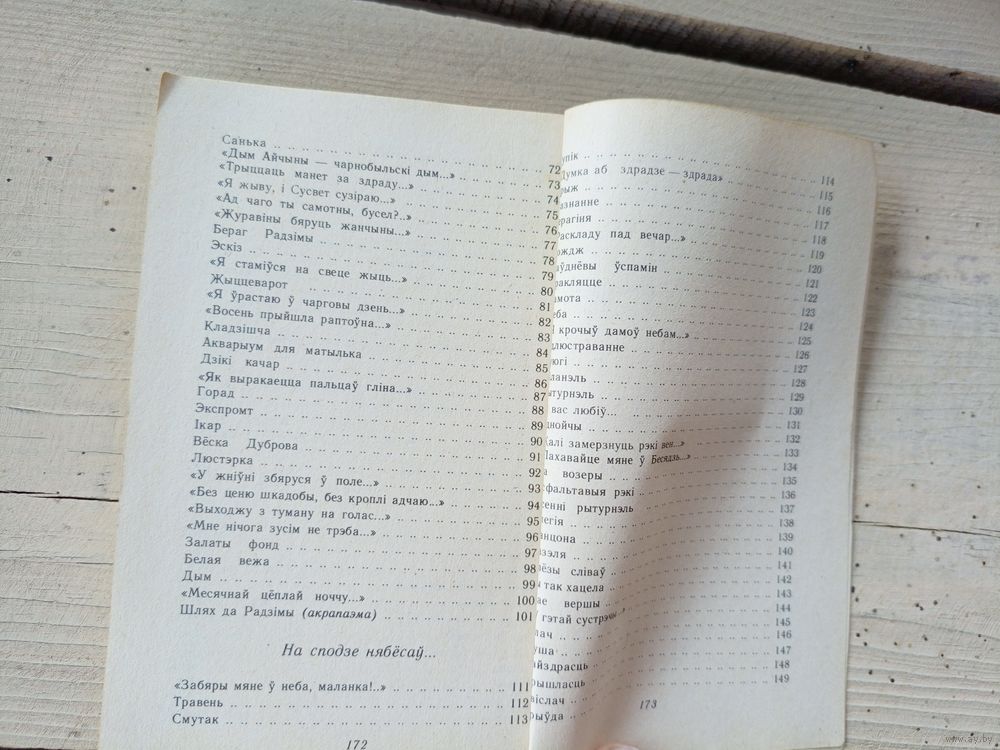 Санька .. 72
«Дым Айчыны — чарнобыльскі дым...» .. 73
«Трыццаць манет за здраду...» .. 74
«Я жыву, і Сусвет сузіраю...» .. 75
«Ад чаго ты самотны, бусел?..» .. 76
«Журавіны бяруць жанчыны...» .. 77
Бераг Радзімы .. 78
Эскіз .. 79
«Я стаміўся на свеце жыць...» .. 80
Жыццеварот .. 81
«Я ўрастаю ў чарговы дзень...» .. 82
«Восень прыйшла раптоўна...» .. 83
Кладзішча .. 84
Акварыум для матылька .. 85
Дзікі качар .. 86
«Як выракаецца пальцаў гліна...» .. 87
Горад .. 88
Экспромт .. 89
Ікар .. 90
Вёска Дуброва .. 91
Люстэрка .. 92
«У жніўні збяруся ў поле...» .. 93
«Без ценю шкадобы, без кроплі адчаю...» .. 94
«Выходжу з туману на голас...» .. 95
«Мне нічога зусім не трэба...» .. 96
Залаты фонд .. 97
Белая вежа .. 98
Дым .. 99
«Месячнай цёплай ноччу...» .. 100
Шлях да Радзімы (акрапаэма) .. 101
На сподзе нябёсаў...
«Забяры мяне ў неба, маланка!..» .. 111
Травень .. 112
Смутак .. 113
172
упік .. 114
Думка аб здрадзе — здрада» .. 115
рыж .. 116
азнанне .. 117
рагіня .. 118
аскладу пад вечар...» .. 119
ождж .. 120
аўднёвы ўспамін .. 121
ракляцце .. 122
амота .. 123
еба .. 124
крочыў дамоў небам...» .. 125
люстраванне .. 126
югі .. 127
ланэль .. 128
ытурнэль .. 129
вас любіў .. 130
днойчы .. 131
алі замерзнуць рэкі вен...» .. 132
Пахавайце мяне ў Бесядзь...» .. 133
а возеры .. 134
сфальтавыя рэкі .. 135
сенні рытурнэль .. 136
легія .. 137
анцона .. 138
азэля .. 139
ёзы сліваў .. 140
так хацела .. 141
ае вершы .. 142
гэтай сустрэчы .. 143
лач .. 144
уша .. 145
айздрасць .. 146
рышласць .. 147
віслач .. 148
рыўда .. 149
173
www.ay.by